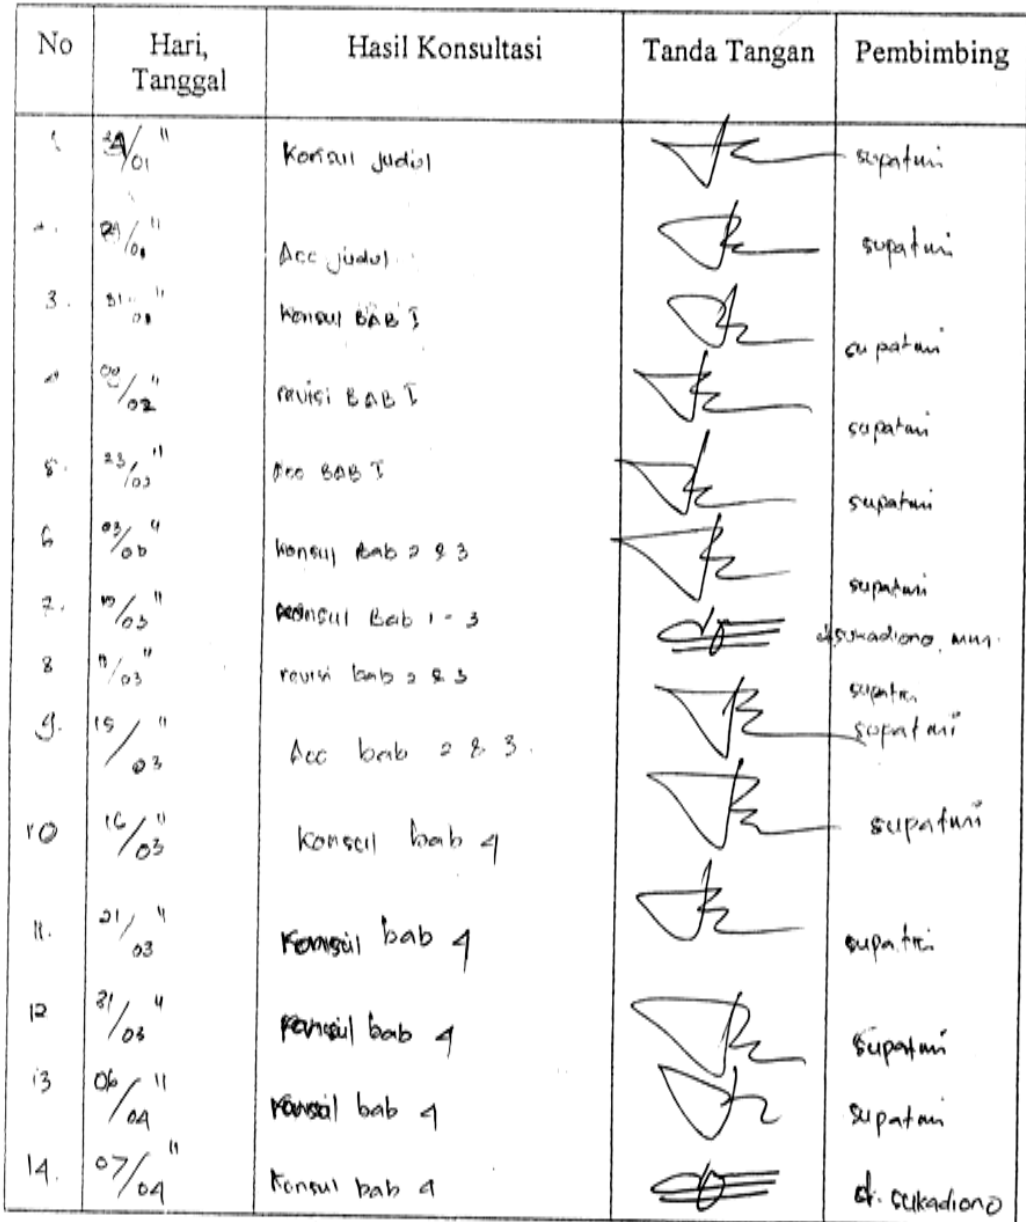 No Hari, Tanggal Hasil Konsultasi Tanda Tangan Pembimbing
1 24/01 " Konsul judul supatmi
2. 29/01 " Acc judul supatmi
3. 31/01 " konsul BAB I supatmi
4 09/02 " revisi BAB I supatmi
5. 23/02 " Acc BAB I supatmi
6 03/03 " konsul Bab 2 & 3 supatmi
7. 10/03 " konsul Bab 1-3 dr.sukadiono, MM.
8 11/03 " revisi bab 2 & 3 supatmi
9. 15/03 " Acc bab 2 & 3. supatmi
10 16/03 " Konsul bab 4 supatmi
11. 21/03 " Konsul bab 4 supatmi
12 31/03 " Konsul bab 4 supatmi
13 06/04 " Konsul bab 4 supatmi
14. 07/04 " Konsul bab 4 dr. sukadiono